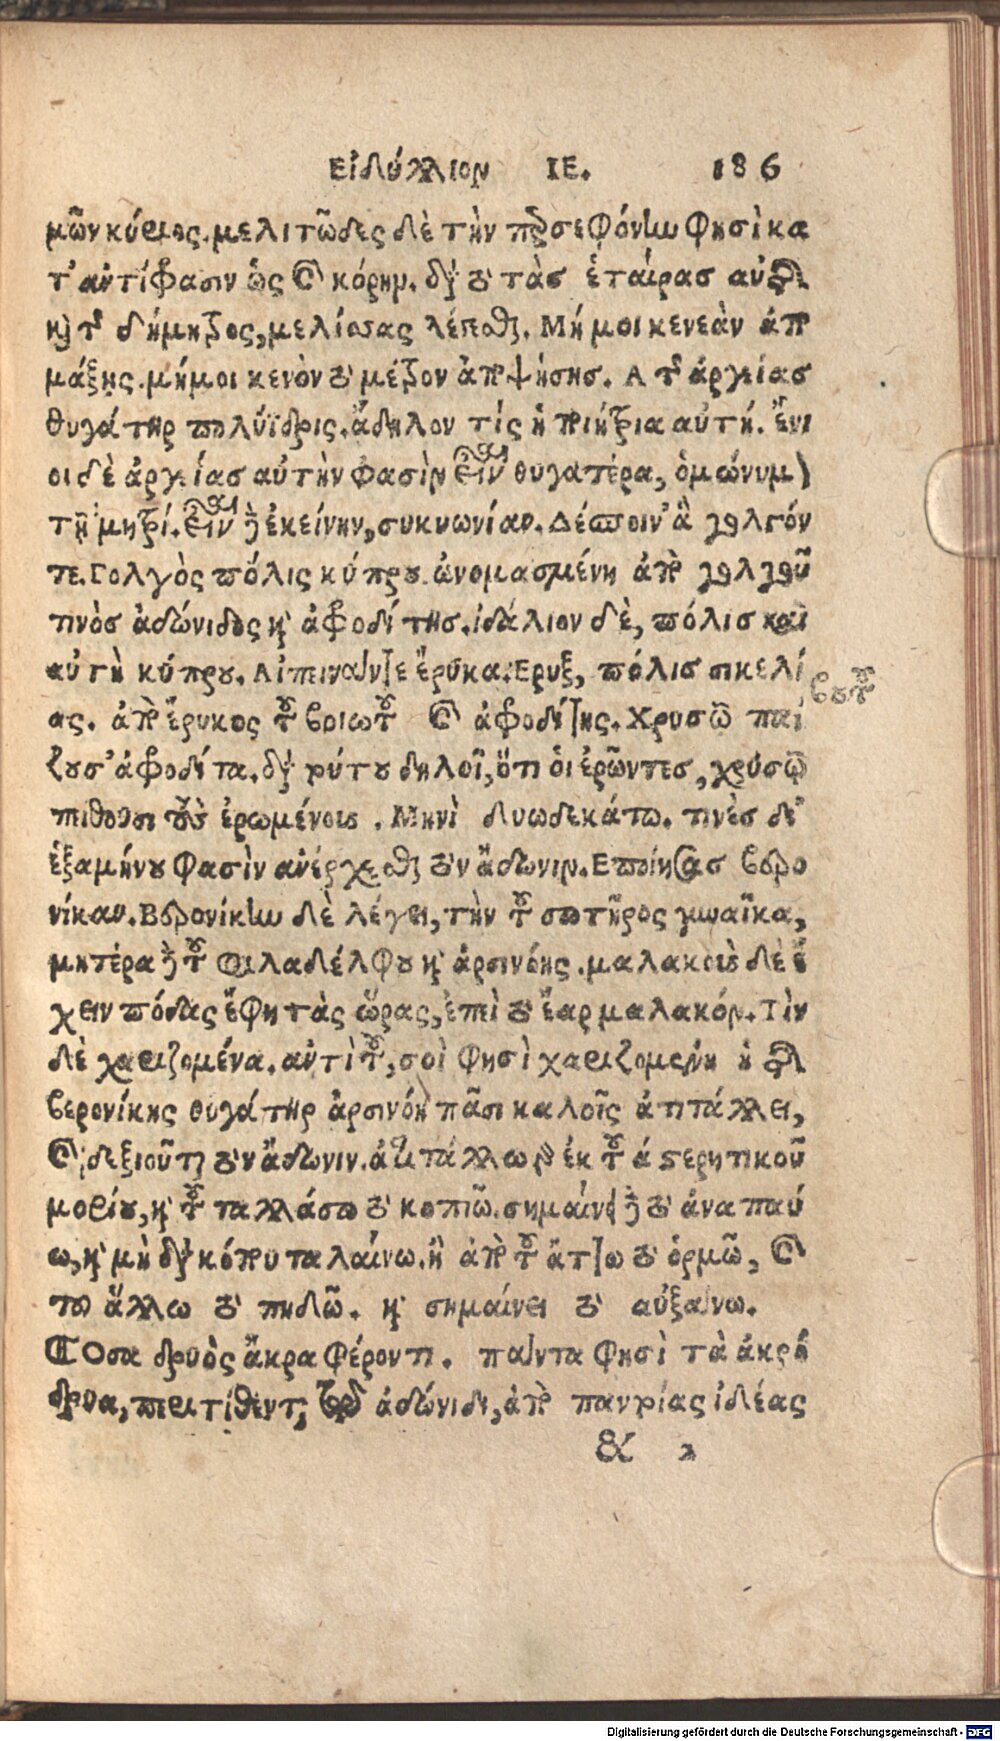 Εἰδύλλιον ΙΕ. 186
μῶν κύριος. μελιτῶδες δὲ τὴν περσεφόνην φησὶ κα
τ' ἀντίφασιν ὡς καὶ κόρην. διὰ τὸ τὰς ἑταίρας αὐτῆς
καὶ τῆς δήμητρος, μελίσσας λέγεσθαι. Μή μοι κενεὰν ἀπο
μάξῃς. μή μοι κενὸν τὸ μέτρον ἀποψήσης. Α τῆς ἀργείας
θυγάτηρ πολύϊδρις. ἄδηλον τίς ἡ ποιήτρια αὐτή. ἔνι
οι δὲ ἀργείας αὐτὴν φασὶν εἶναι θυγατέρα, ὁμώνυμον
τῇ μητρί. εἶναι δὲ ἐκείνην, συκυωνίαν. Δέσποιν' ἃ γολγόν
τε. Γολγὸς πόλις κύπρου ὠνομασμένη ἀπὸ γολγοῦ
τινὸς ἀδώνιδος καὶ ἀφροδίτης. ἰδάλιον δὲ, πόλις καὶ
αὐτὴ κύπρου. Αἰπεινάν τε ἔρυκα. Ερυξ, πόλις σικελί
ας. ἀπὸ ἔρυκος τοῦ βριωτοῦ καὶ ἀφροδίτης. Χρυσῷ παί
βουτοῦ
ζουσ' ἀφροδίτα. διὰ τούτου δηλοῖ, ὅτι οἱ ἐρῶντες, χρυσῷ
πιθοῦσι τοὺς ἐρωμένους. Μηνὶ δυωδεκάτῳ. τινὲς δι'
ἑξαμήνου φασὶν ἀνέρχεσθαι τὸν ἄδωνιν. Εποίησας βερο
νίκαν. Βερονίκην δὲ λέγει, τὴν τοῦ σωτῆρος γυναῖκα,
μητέρα δὲ τοῦ φιλαδέλφου καὶ ἀρσινόης. μαλακοὺς δὲ ἔ
χειν πόδας ἔφη τὰς ὥρας, ἐπεὶ τὸ ἔαρ μαλακόν. Τὶν
δὲ χαριζομένα. ἀντὶ τοῦ, σοὶ φησὶ χαριζομένη ἡ τῆς
βερονίκης θυγάτηρ ἀρσινόη πᾶσι καλοῖς ἀτιτάλλει,
καὶ δεξιοῦται τὸν ἄδωνιν. ἀτιτάλλω δὲ ἐκ τοῦ α στερητικοῦ
μορίου, καὶ τοῦ ταλλάσω τὸ κοπιῶ. σημαίνει δὲ τὸ ἀναπαύ
ω, καὶ μὴ διὰ κόπου ταλαίνω. ἢ ἀπὸ τοῦ ἄττω τὸ ὁρμῶ, καὶ
τὸ ἄλλω τὸ πηδῶ. καὶ σημαίνει τὸ αὐξάνω.
Οσα δρυὸς ἄκρα φέροντι. πάντα φησὶ τὰ ἀκρό
δρυα, περιτίθενται τῷ ἀδώνιδι, ἀπὸ παντοίας ἰδέας
& 2
Digitalisierung gefördert durch die Deutsche Forschungsgemeinschaft - DFG